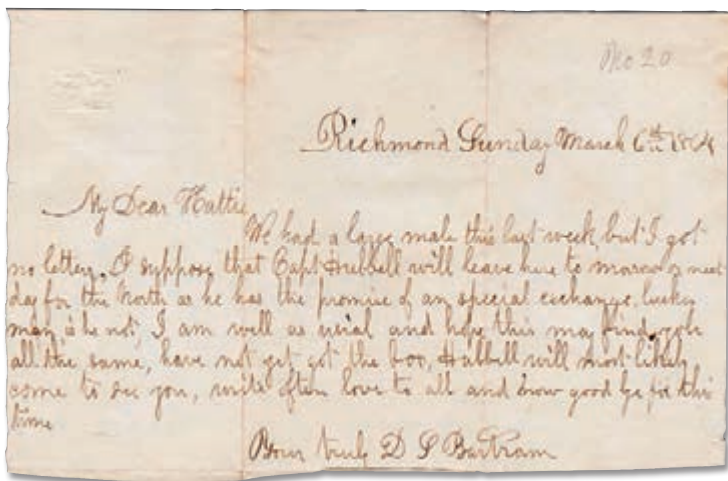 No 20
Richmond Sunday March 6th 1864
My Dear Hattie
We had a large male this last week, but I got
no letters. I suppose that Capt Hubbell will leave here to morow or next
day for the North as he has the promise of an special exchange, lucky
man is he not, I am well as usial and hope this may find you
all the same, have not yet got the box, Hubbell will most likely
come to see you, write often love to all and now good bye for this
time
Your truly D S Bartram